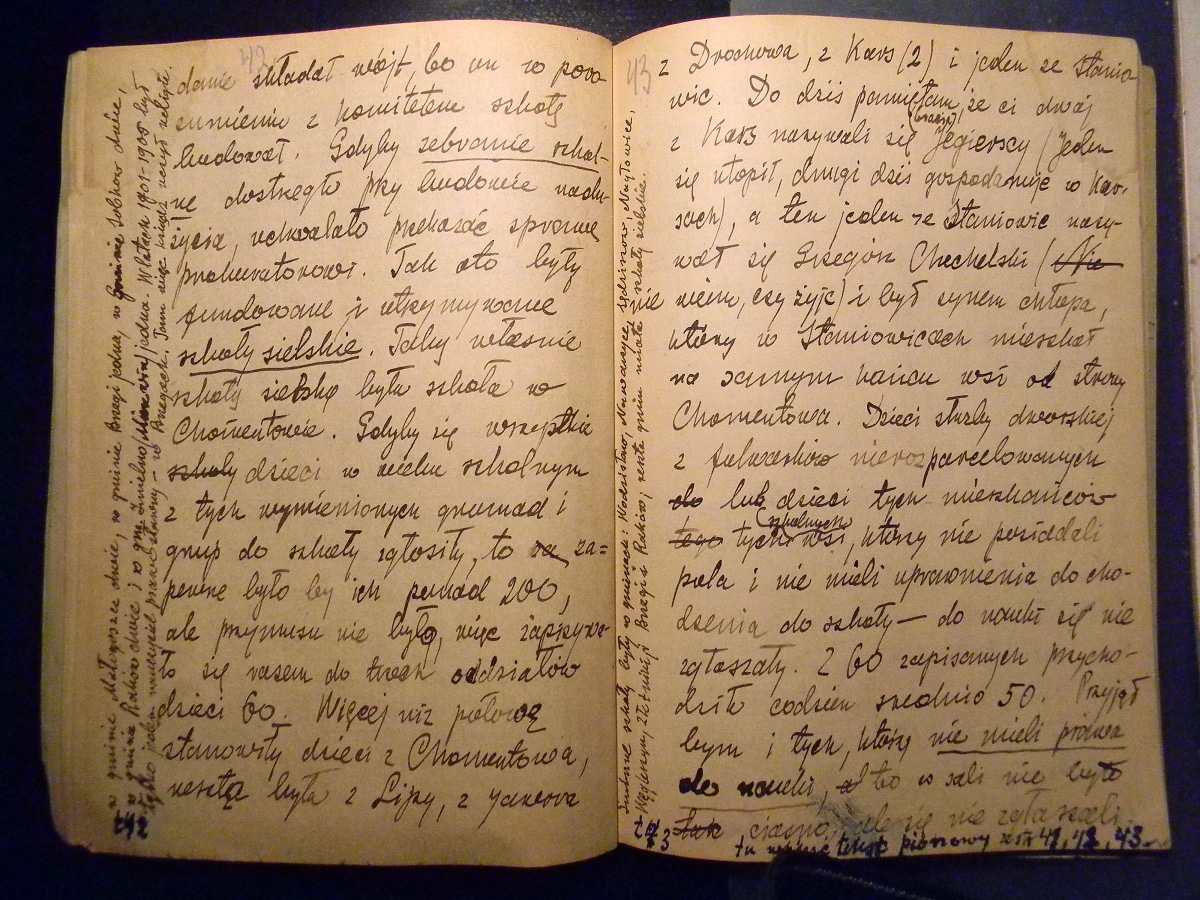 42
danie składał wójt, bo on w poro
zumieniu z komitetem szkołę
budował. Gdyby zebranie szkol-
ne dostrzegło przy budowie nadu-
życia, uchwalało przekazać sprawę
prokuratorowi. Tak oto były
fundowane i utrzymywane
szkoły sielskie. Taką właśnie
szkołą sielską była szkoła w
Chomentowie. Gdyby się wszystkie
szkoły dzieci w wieku szkolnym
z tych wymienionych gromad i
grup do szkoły zgłosiły, to za=
pewne było by ich ponad 200,
ale przymusu nie było, więc zapisywa-
ło się razem do trzech oddziałów
dzieci 60. Więcej niż połowę
stanowiły dzieci z Chomentowa,
reszta była z Lipy, z Jaworа
w gminie Małogoszcz dwie, w gminie Brzegi jedna, w gminie Sobków dwie,
w gminie Raków dwie; w gm. Imielno jedna. W latach 1901-1905 był
tylko jeden nauczyciel prawosławny - w Brzegach. Tam więc ksiądz uczył religii.
42
43
z Drochowa, z Kars (2) i jeden ze Stanio
wic. Do dziś pamiętam, że ci dwaj
(bracia)
z Kars nazywali się Jegierscy (Jeden
się utopił, drugi dziś gospodaruje w Kar-
sach), a ten jeden ze Staniowic nazy-
wał się Grzegorz Chechelski (Nie
nie wiem, czy żyje) i był synem chłopa,
który w Staniowicach mieszkał
na samym końcu wsi od strony
Chomentowa. Dzieci służby dworskiej
z folwarków nierozparcelowanych
do lub dzieci tych mieszkańców
szkolnych
tego tych wsi, którzy nie posiadali
pola i nie mieli uprawnienia do cho-
dzenia do szkoły — do nauki się nie
zgłaszały. Z 60 zapisanych przycho-
dziło codzień średnio 50. Przyjął
bym i tych, którzy nie mieli prawa
do nauki, bo w sali nie było
ciasno, ale się nie zgłaszali.
szkoły były w gminach: Wodzisław, Nawarzyce, Sędziszów, Nagłowice,
Węgleszyn, Złotniki, Brzegi i Raków; reszta gmin miała szkoły sielskie.
43
tu wpisać tekst pionowy ze str 41, 42, 43